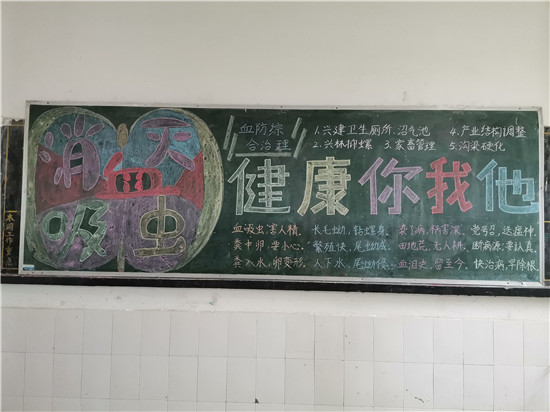 消灭
血
吸虫
血防综
合治理
1.兴建卫生厕所、沼气池
4.产业结构调整
2.兴林抑螺
3.家畜管理
5.沟渠硬化
健康你我他
血吸虫,害人精,
长毛蚴,钻螺身,
袭了病,祸害深,
党号召,送瘟神
粪中卵,要小心,
繁殖快,尾蚴成,
田地荒,无人耕,
断病源,要认真,
粪入水,卵变形,
人下水,
血泪史,留至今,
快治病,早除根
本周工作重点